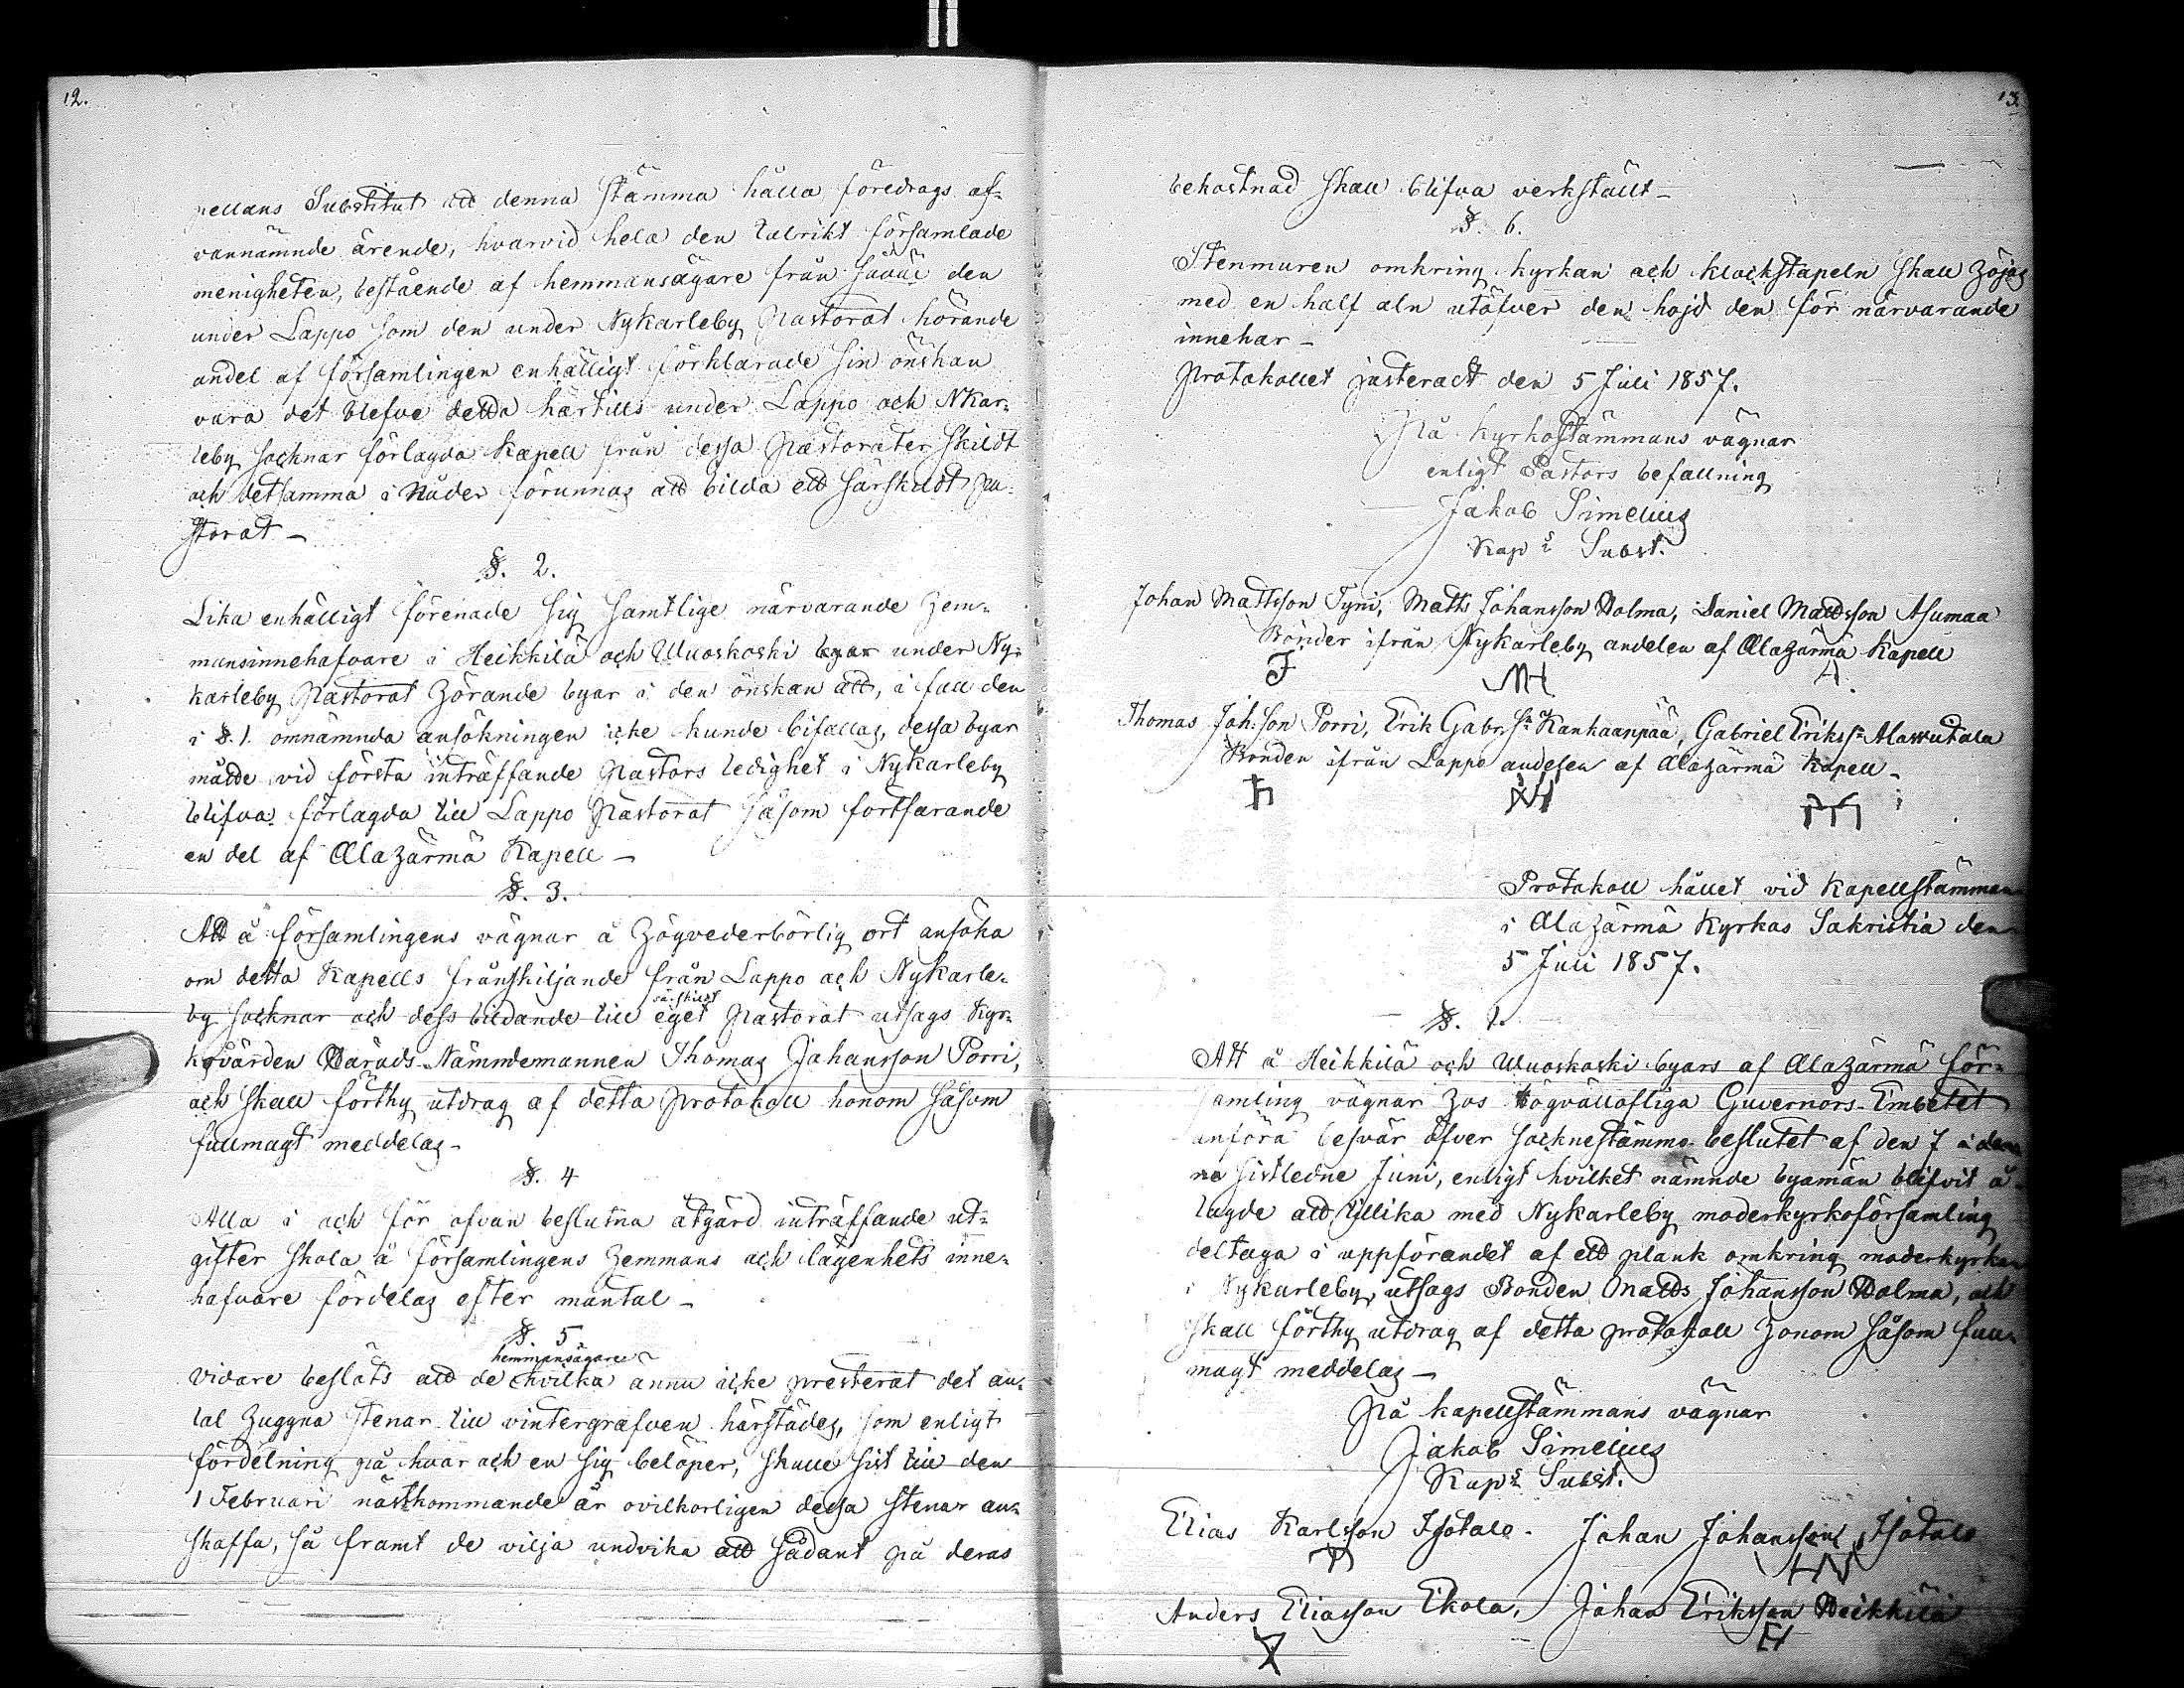 12.
pellans Substitut att denna stämma hålla, föredrags of-
vannämnde ärende, hvarvid hela den talrikt församlade
menigheten, bestående af hemmansägare från såväl den
under Lappo som den under Nykarleby Pastorat hörande
andel af församlingen enhälligt förklarade sin önskan
vara det blefve detta härtills under Lappo och Nkar-
leby socknar förlagda Kapell från dessa Pastorater skildt
och detsamma i Nåder förunnas att bilda ett särskildt Pa-
storat —
§. 2.
Lika enhälligt förenade sig samtlige närvarande hem-
mansinnehafvare i Heikkilä och Wuoskoski byar under Ny-
karleby Pastorat hörande byar i den önskan att, i fall den
i §. 1. omnämnda ansökningen icke kunde bifallas, dessa byar
måtte vid första inträffande Pastors ledighet i Nykarleby
blifva förlagda till Lappo Pastorat såsom fortfarande
en del af Alahärmä Kapell —
§. 3.
Att å församlingens vägnar å högvederbörlig ort ansöka
om detta Kapells frånskiljande från Lappo och Nykarle-
by socknar och dess bildande till eget särskildt Pastorat utsågs Kyr-
kovärden Härads-Nämndemannen Thomas Johansson Porri,
och skall förthy utdrag af detta protokoll honom såsom
fullmagt meddelas —
§. 4
Alla i och för ofvan beslutna åtgärd inträffande ut-
gifter skola å församlingens hemmans och lägenhets inne-
hafvare fördelas efter mantal —
§. 5.
Vidare beslöts att de hemmansägare hvilka ännu icke presterat det an-
tal huggna stenar till vintergrafven härstädes, som enligt
fördelning på hvar och en sig belöper, skulle sist till den
1 Februari nästkommande år ovilkorligen dessa stenar an-
skaffa, så framt de vilja undvika att sådant på deras
13.
bekostnad skall blifva verkställt —
§. 6.
Stenmuren omkring kyrkan och klockstapeln skall höjas
med en half aln utöfver den höjd den för närvarande
innehar —
Protokollet justeradt den 5 Juli 1857.
På kyrkostämmans vägnar
enligt Pastors befallning
Jakob Simelius
Kap:s Subst.
Johan Mattsson Tyni, Matts Johansson Holma, Daniel Mattsson Asumaa
Bönder ifrån Nykarleby andelen af Alahärmä Kapell
Thomas Joh:son Porri, Erik Gabr:sn Kankaanpää, Gabriel Erikss:n Alawutala
Bonden ifrån Lappo andelen af Alahärmä Kapell —
Protokoll hållet vid Kapellstämman
i Alahärmä Kyrkas Sakristia den
5 Juli 1857.
§. 1.
Att å Heikkilä och Wuoskoski byars af Alahärmä för-
samling vägnar hos Högvällofliga Guvernörs-Embetet
anföra besvär öfver socknestämmo-beslutet af den 7 i den-
na sistledne Juni, enligt hvilket nämnde byamän blifvit å-
lagde att tillika med Nykarleby moderkyrkoförsamling
deltaga i uppförandet af ett plank omkring moderkyrkan
i Nykarleby, utsågs Bonden Matts Johansson Holma, och
skall förthy utdrag af detta protokoll honom såsom full-
magt meddelas —
På kapellstämmans vägnar
Jakob Simelius
Kap:s Subst.
Elias Karlsson Isotalo. Johan Johansson Isotalo
Anders Eliasson Ekola, Johan Eriksson Heikkilä